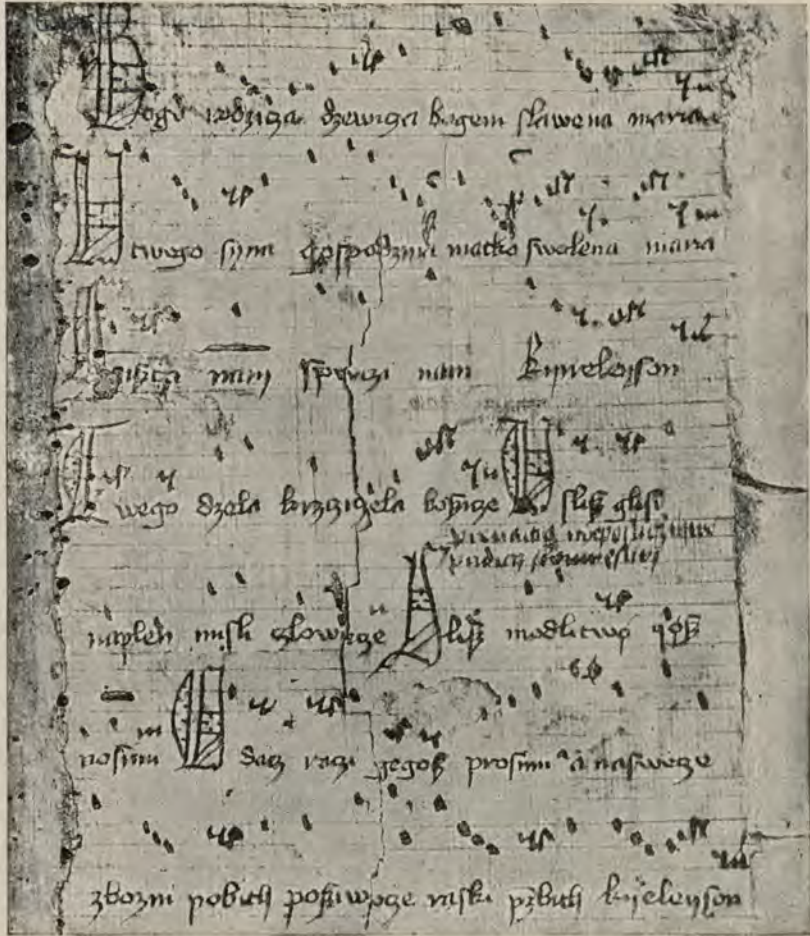 Bogv rodzicza dzewicza bogem slawena maria
U twego syna gospodzina matko swolena maria
Ziszczi nam spwczi nam kyrieleyson
Twego dzela krzcziczela boszicze Uslisz glosi
naplen misli czlowecze Slisz modlitwo yosz
nosimi Odacz raczi gegosz prosimi a naswecze
zbozni pobith posziwocze raski przbith kyrieleyson